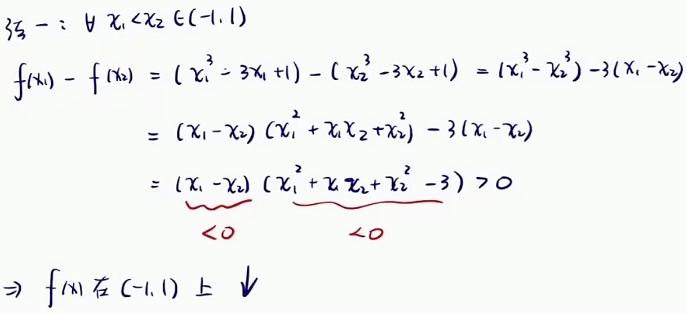 法一：∀ x₁<x₂∈(-1,1)
f(x₁) - f(x₂) = (x₁³ - 3x₁+1) - (x₂³-3x₂+1) = (x₁³-x₂³)-3(x₁-x₂)
= (x₁-x₂)(x₁²+x₁x₂+x₂²) - 3(x₁-x₂)
= (x₁-x₂)(x₁²+x₁x₂+x₂²-3) > 0
<0 <0
⇒ f(x)在(-1,1)上 ↓